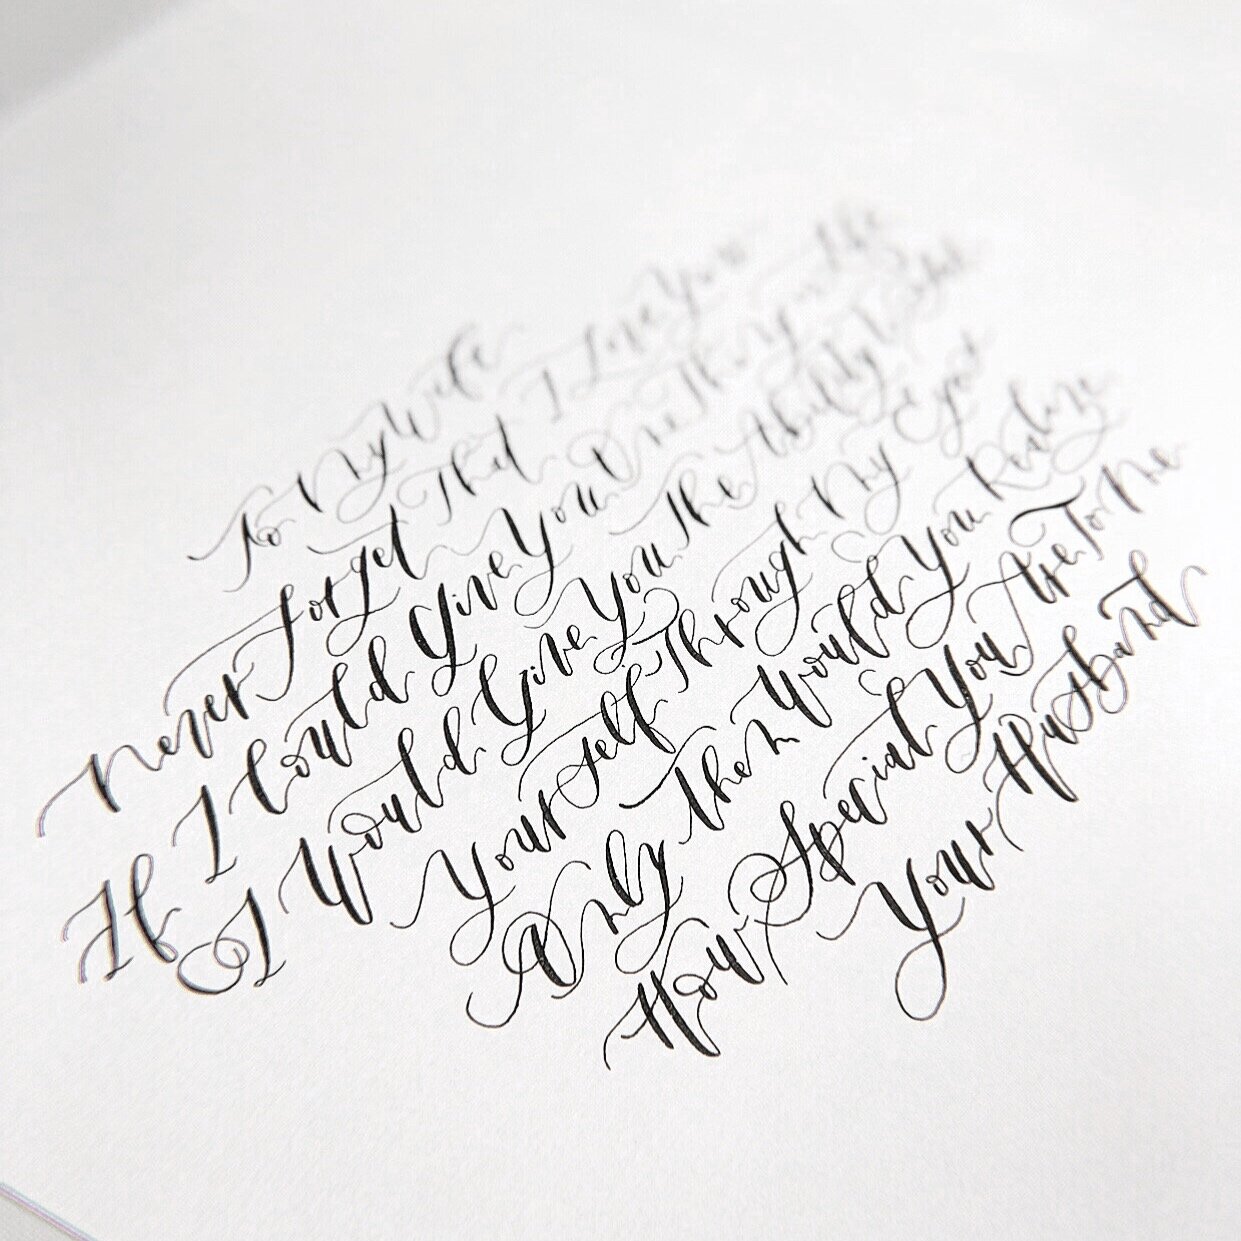 To My Wife
Never Forget That I Love You
If I Could Give You One Thing In Life
I Would Give You The Ability To See
Yourself Through My Eyes
Only Then Would You Realize
How Special You Are To Me
Your Husband